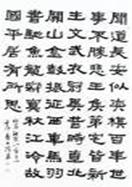 聞道長安似奕棋百年世
事不勝悲王侯第宅皆新
主文武衣冠異昔時直北
關山金鼓震征西車馬羽
書馳魚龍寂寞秋江冷故
國平居有所思